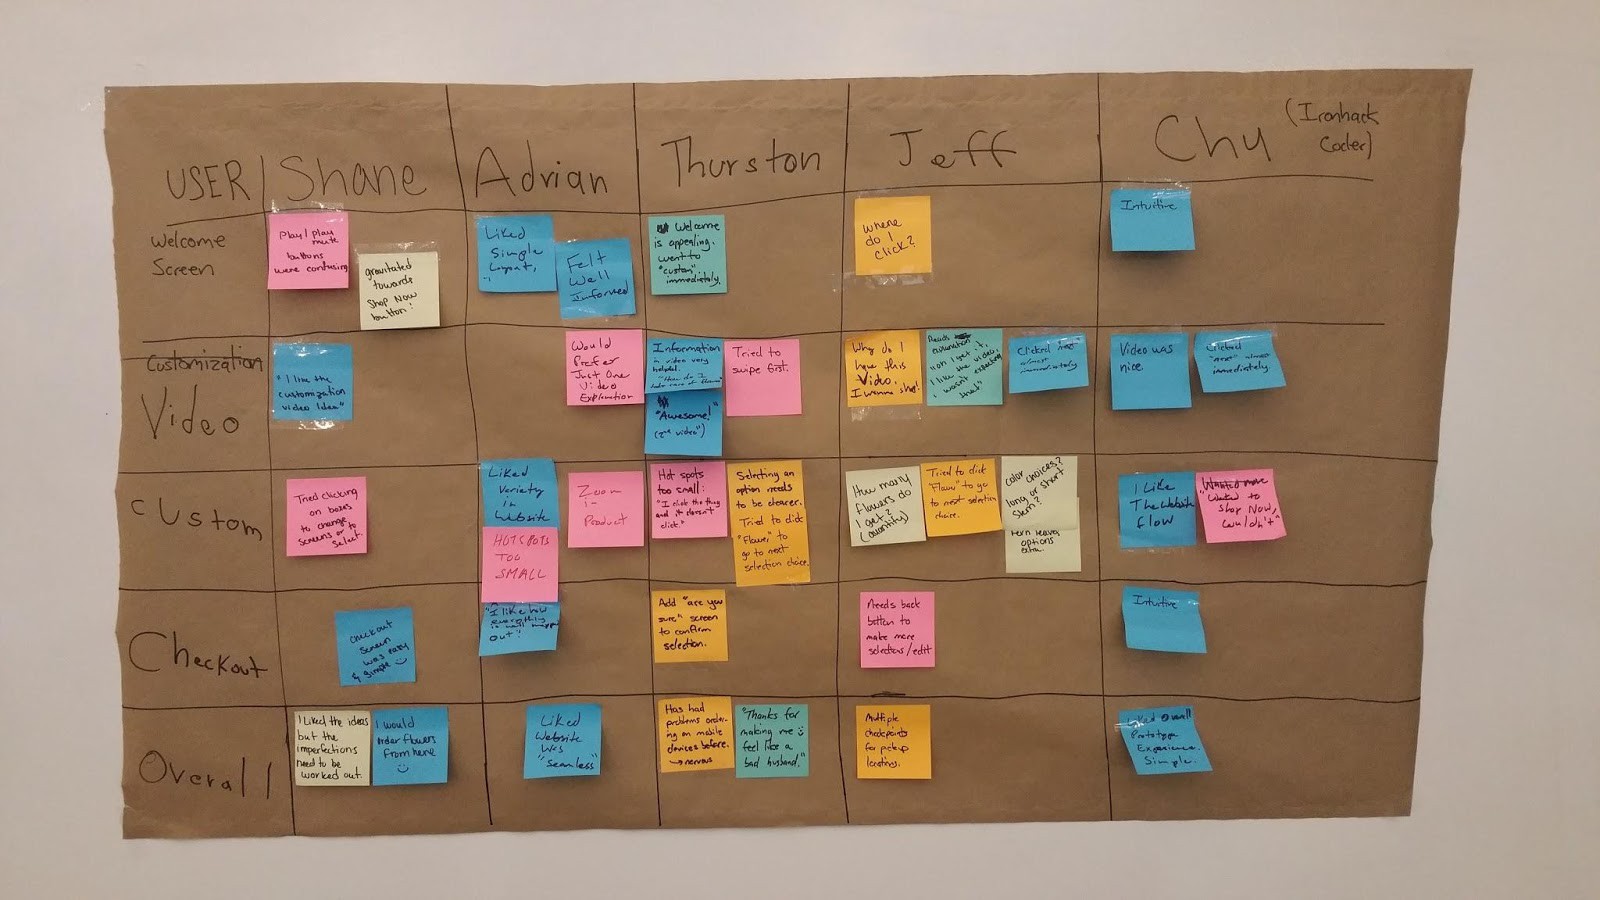 USER
Shane
Adrian
Thurston
Jeff
Chu
(Ironhack
Coder)
Welcome
Screen
Play/play
mute
buttons
were confusing
gravitated
towards
Shop Now
button!
Liked
Simple
Layout,
Felt
Well
Informed
Welcome
is appealing.
went to
"custom"
immediately.
Where
do I
click?
Intuitive
Customization
Video
"I like the
customization
video Idea"
Would
Prefer
Just One
Video
Explanation
Information
in video very
helpful.
"How do I
take care of flowers"
"Awesome!"
(2nd video")
Tried to
swipe first.
Why do I
have this
Video.
I wanna shop!
Reads
explanation
"oh I get it,
I like the video,
I wasn't expecting
that"
Clicked "next"
almost
immediately
Video was
nice.
Clicked
"next" almost
immediately.
Custom
Tried clicking
on boxes
to change
screens or to
select.
Liked
Variety
in
Website
Zoom
in
Product
HOTSPOTS
TOO
SMALL
Hot spots
too small:
"I click the thing
and it doesn't
click."
Selecting an
option needs
to be clearer.
Tried to click
"Flower" to
go to next
selection choice.
How many
flowers do
I get?
(quantity)
Tried to click
"Flower" to go
to next selection
choice.
color choices?
long or short
stem?
Fern leaves,
options
extra.
I Like
The Website
flow
Wanted to
Shop Now,
Couldn't"
Checkout
Checkout
screen
was easy
& simple
"I like how
everything
is well mapped
out"
Add "are you
sure" screen
to confirm
selection.
Needs back
button to
make more
selections/edit
Intuitive
Overall
I liked the ideas
but the
imperfections
need to be
worked out.
I would
order flowers
from here
Liked
Website
Was
"Seamless"
Has had
problems order-
ing on mobile
devices before.
→ nervous
"Thanks for
making me
feel like a
bad husband."
Multiple
checkpoints
for pickup
locating.
Liked Overall
Prototype
Experience.
Simple.